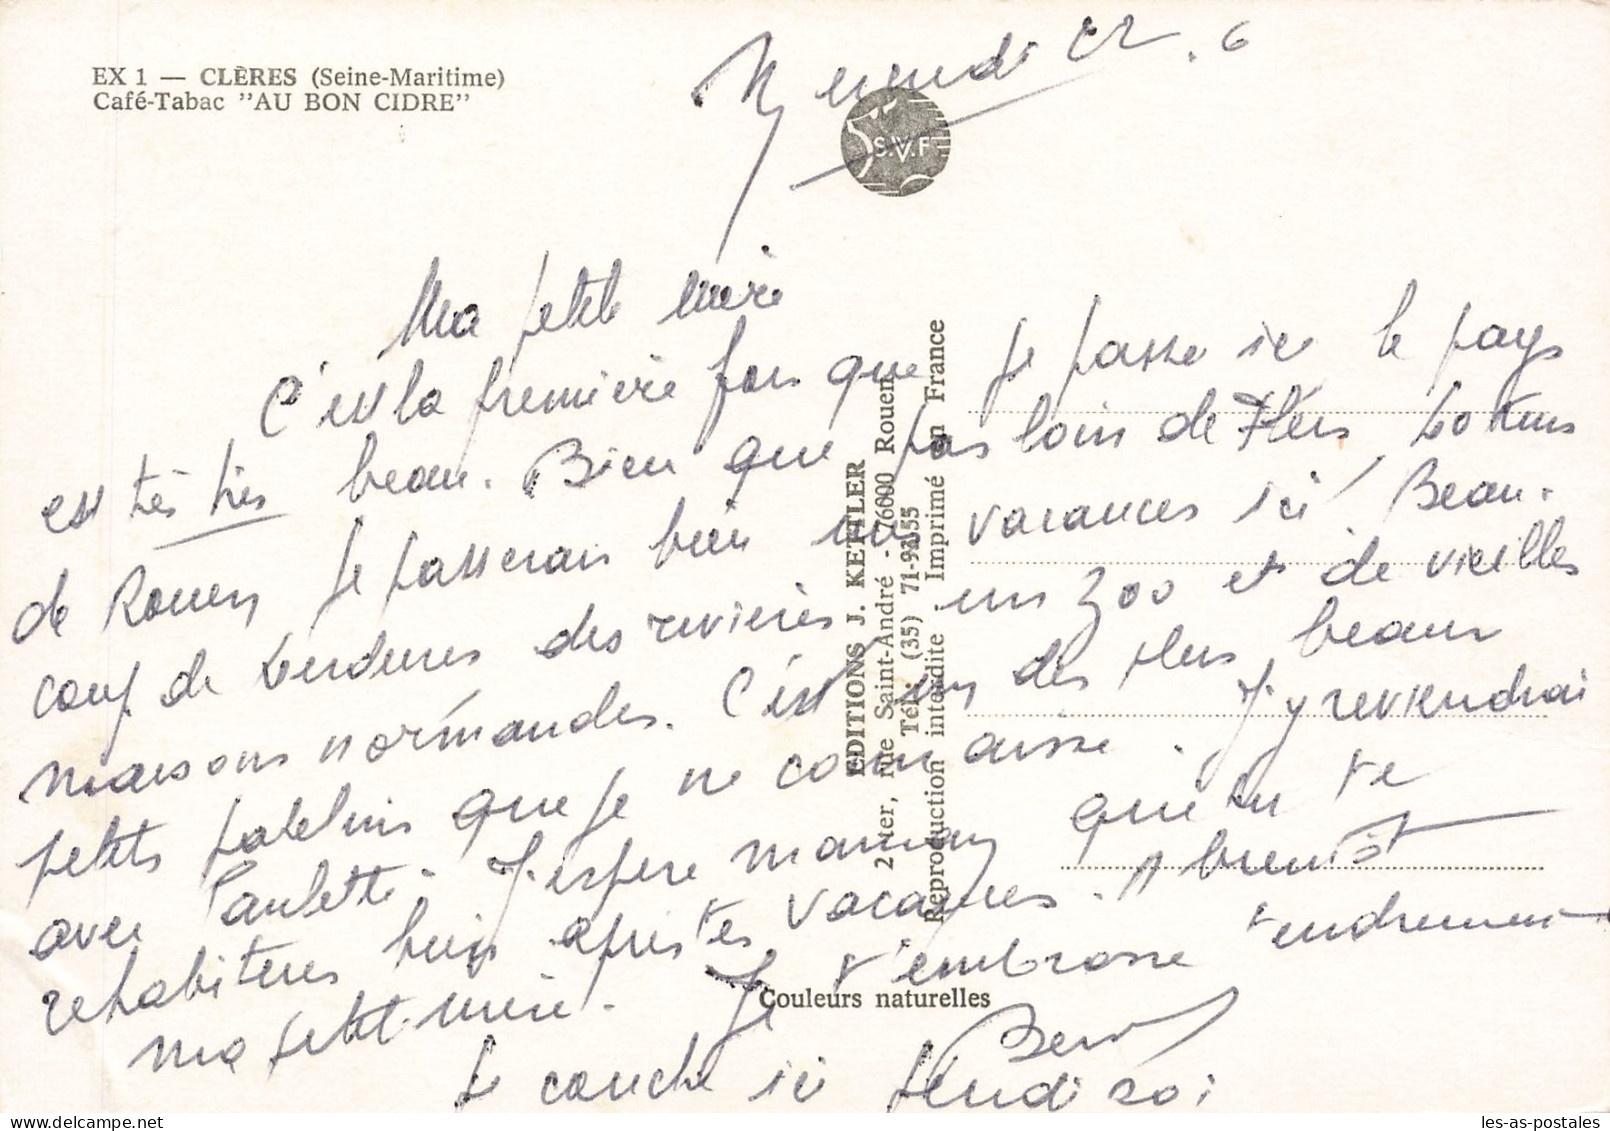 EX 1 — CLÈRES (Seine-Maritime)
Café-Tabac "AU BON CIDRE"
S.V.F
22 . 6
Ma petite mère
C'est la première fois que je passe ici le pays
est très très beau. Bien que pas loin de
de Rouen je passerais bien mes vacances ici. Beau-
coup de verdures des rivières un zoo et de vieilles
maisons normandes. C'est un des plus beaux
petits patelins que je ne connaisse. J'y reviendrai
avec Paulette. J'espère maman que tu te
rehabitues bien après tes vacances. A bientôt
ma petite mère. Je t'embrasse tendrement
Je couche ici
EDITIONS J. KETTLER
2 ter, rue Saint-André - 76000 Rouen
Reproduction interdite - Imprimé en France
Couleurs naturelles
les-as-postales